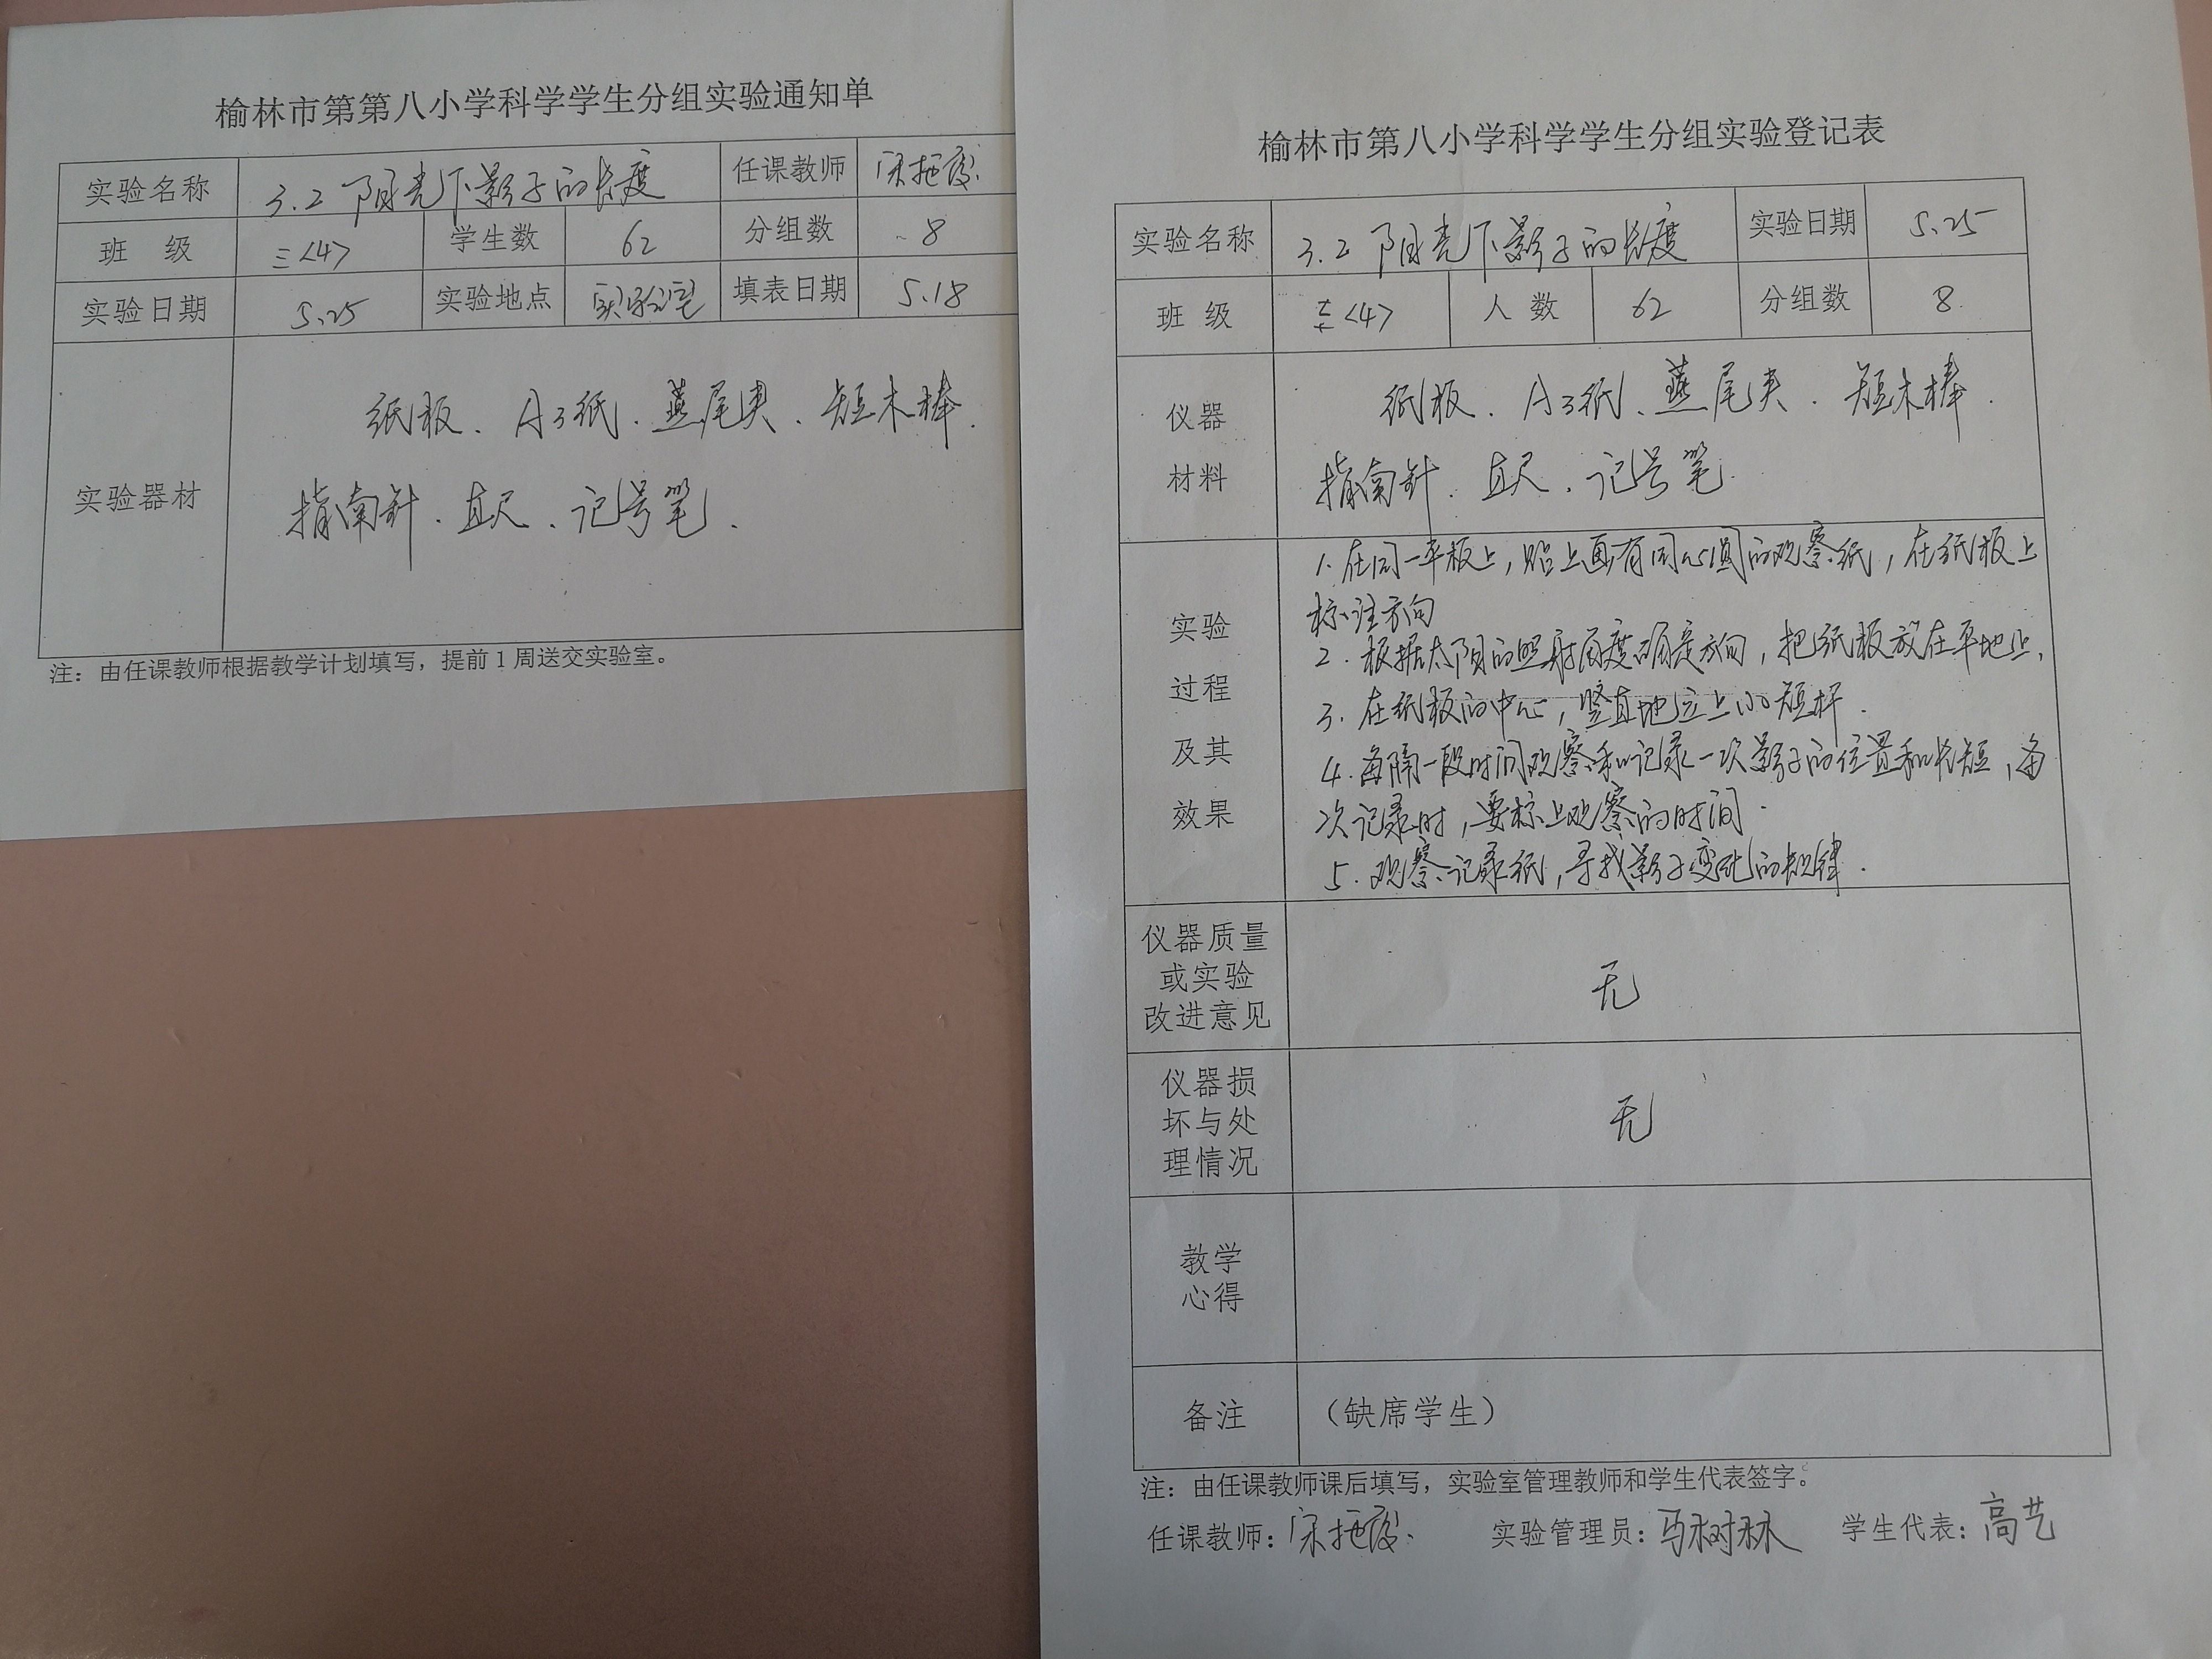 榆林市第第八小学科学学生分组实验通知单
实验名称 3.2 阳光下影子的长度 任课教师
班 级 三<4> 学生数 62 分组数 8
实验日期 5.25 实验地点 实验室 填表日期 5.18
实验器材
纸板、A3纸、燕尾夹、短木棒、
指南针、直尺、记号笔、
注：由任课教师根据教学计划填写，提前1周送交实验室。
榆林市第八小学科学学生分组实验登记表
实验名称 3.2 阳光下影子的长度 实验日期 5.25
班 级 <4> 人 数 62 分组数 8
仪器
材料
纸板、A3纸、燕尾夹、短木棒、
指南针、直尺、记号笔.
实验
过程
及其
效果
1.在同一平板上，贴上画有同心圆的观察纸，在纸板上
标注方向
2.根据太阳的照射角度确定方向，把纸板放在平地上.
3.在纸板的中心，竖直地立上小短杆.
4.每隔一段时间观察和记录一次影子的位置和长短，每
次记录时，要标上观察的时间.
5.观察记录纸，寻找影子变化的规律.
仪器质量
或实验
改进意见
无
仪器损
坏与处
理情况
无
教学
心得
备注 （缺席学生）
注：由任课教师课后填写，实验室管理教师和学生代表签字。
任课教师： 实验管理员：马树林 学生代表：高艺